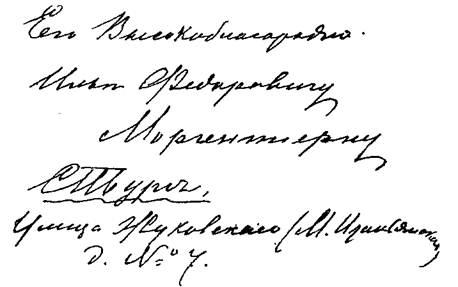 Его Высокоблагородію.
Ильѣ Федоровичу
Моргенштерну
СПбургъ,
Улица Жуковскаго (М. Итальянская)
д. № 7.